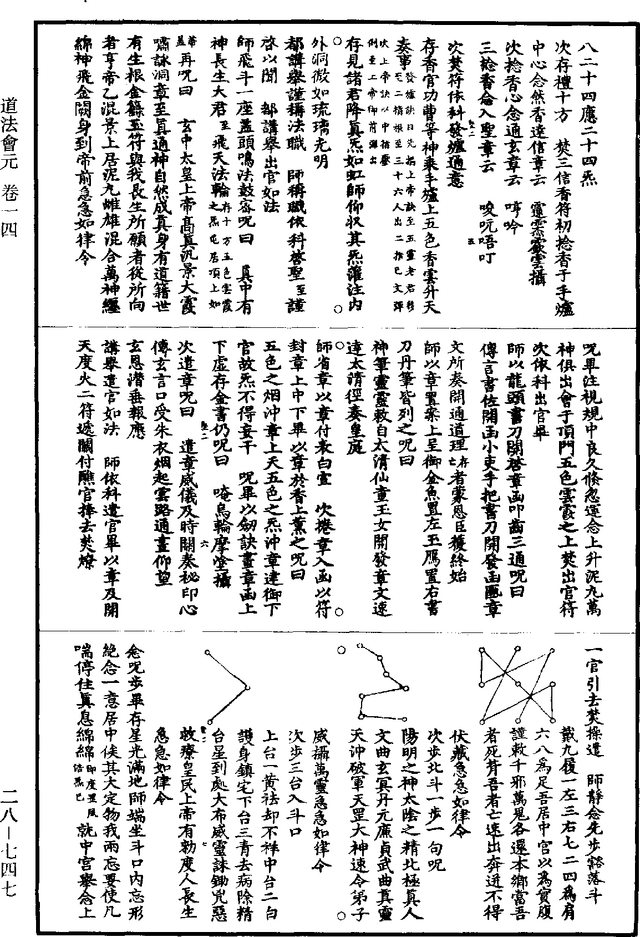 道法會元 卷一四
二八—七四七
八二十四應二十四炁
次存禮十方 焚三信香符初捻香于手爐
中心念然香達信章云
次捻香心念通玄章云 哼吟
三捻香念入聖章云 唆呪唔叮
次焚符依科發爐通意
存香官功曹等神乘手爐上五色香雲升天
奏事
存見諸君降真炁如虹師仰收其炁灌注內
外洞徹如琉璃光明
都講舉謹稱法職 師稱職依科啓聖至謹
啓以聞 都講舉出官如法
師飛斗一座蓋頭鳴法鼓密呪曰 真中有
神長生大君至飛天法輪
再呪曰 玄中太皇上帝高真汎景大霞
嘯詠洞章至真通神自然成真身有道籍世
有生根金籙玉符與我長生所願者從所向
者亨帝乙混景上居泥九雌雄混合萬神纏
綿神飛金闕身到帝前急急如律令
呪畢注視規中良久倏忽運念上升泥九萬
神俱出會于頂門五色雲霞之上焚出官符
次依科出官畢
師以龍頭書刀開啓章函叩齒三通呪曰
傳言書佐開函小吏手把書刀開發函匭章
文所奏開通道理存者蒙恩臣獲終始
師以章置案上呈御金魚置左玉鴈置右書
刀丹筆皆列之呪曰
神筆靈靈敕自太清仙童玉女開發章文速
達太清徑奏皇庭
師省章以章付表白宣 次捲章入函以符
封章上中下畢以章於香上薰之呪曰
五色之烟沖章上天五色之炁沖章達御下
官故炁不得妄干 呪畢以劍訣畫章函上
下虛存金書仍呪曰 唵烏輪摩堂攝
次遣章呪曰 遣章威儀及時開奏秘印心
傳玄言口受朱衣烟起雲路通晝仰望
玄恩潛垂報應
講舉遣官如法 師依科遣官畢以章及開
天度火二符遞關付醮官捧去焚燎
一官引去焚操遣 師靜念先步豁落斗
戴九履一左三右七二四為肩
六八為足吾居中宮以為實腹
謹敕千邪萬鬼各還本鄉當吾
者死背吾者亡速出奔迸不得
伏藏急急如律令
次步北斗一步一句呪
陽明之神太陰之精北極真人
文曲玄真丹元廉貞武曲真靈
天沖破軍天罡大神速令弟子
威攝萬靈急急如律令
次步三台入斗口
上台一黃祛却不祥中台二白
護身鎮定下台三青去病除精
台星到處大布威靈誅鋤兇惡
救療皇民上帝有勅度人長生
急急如律令
念呪步畢存星光滿地師端坐斗口內忘形
絕念一意居中俟其大定物我兩忘要使凡
喘停住真息綿綿 就中宮舉念上